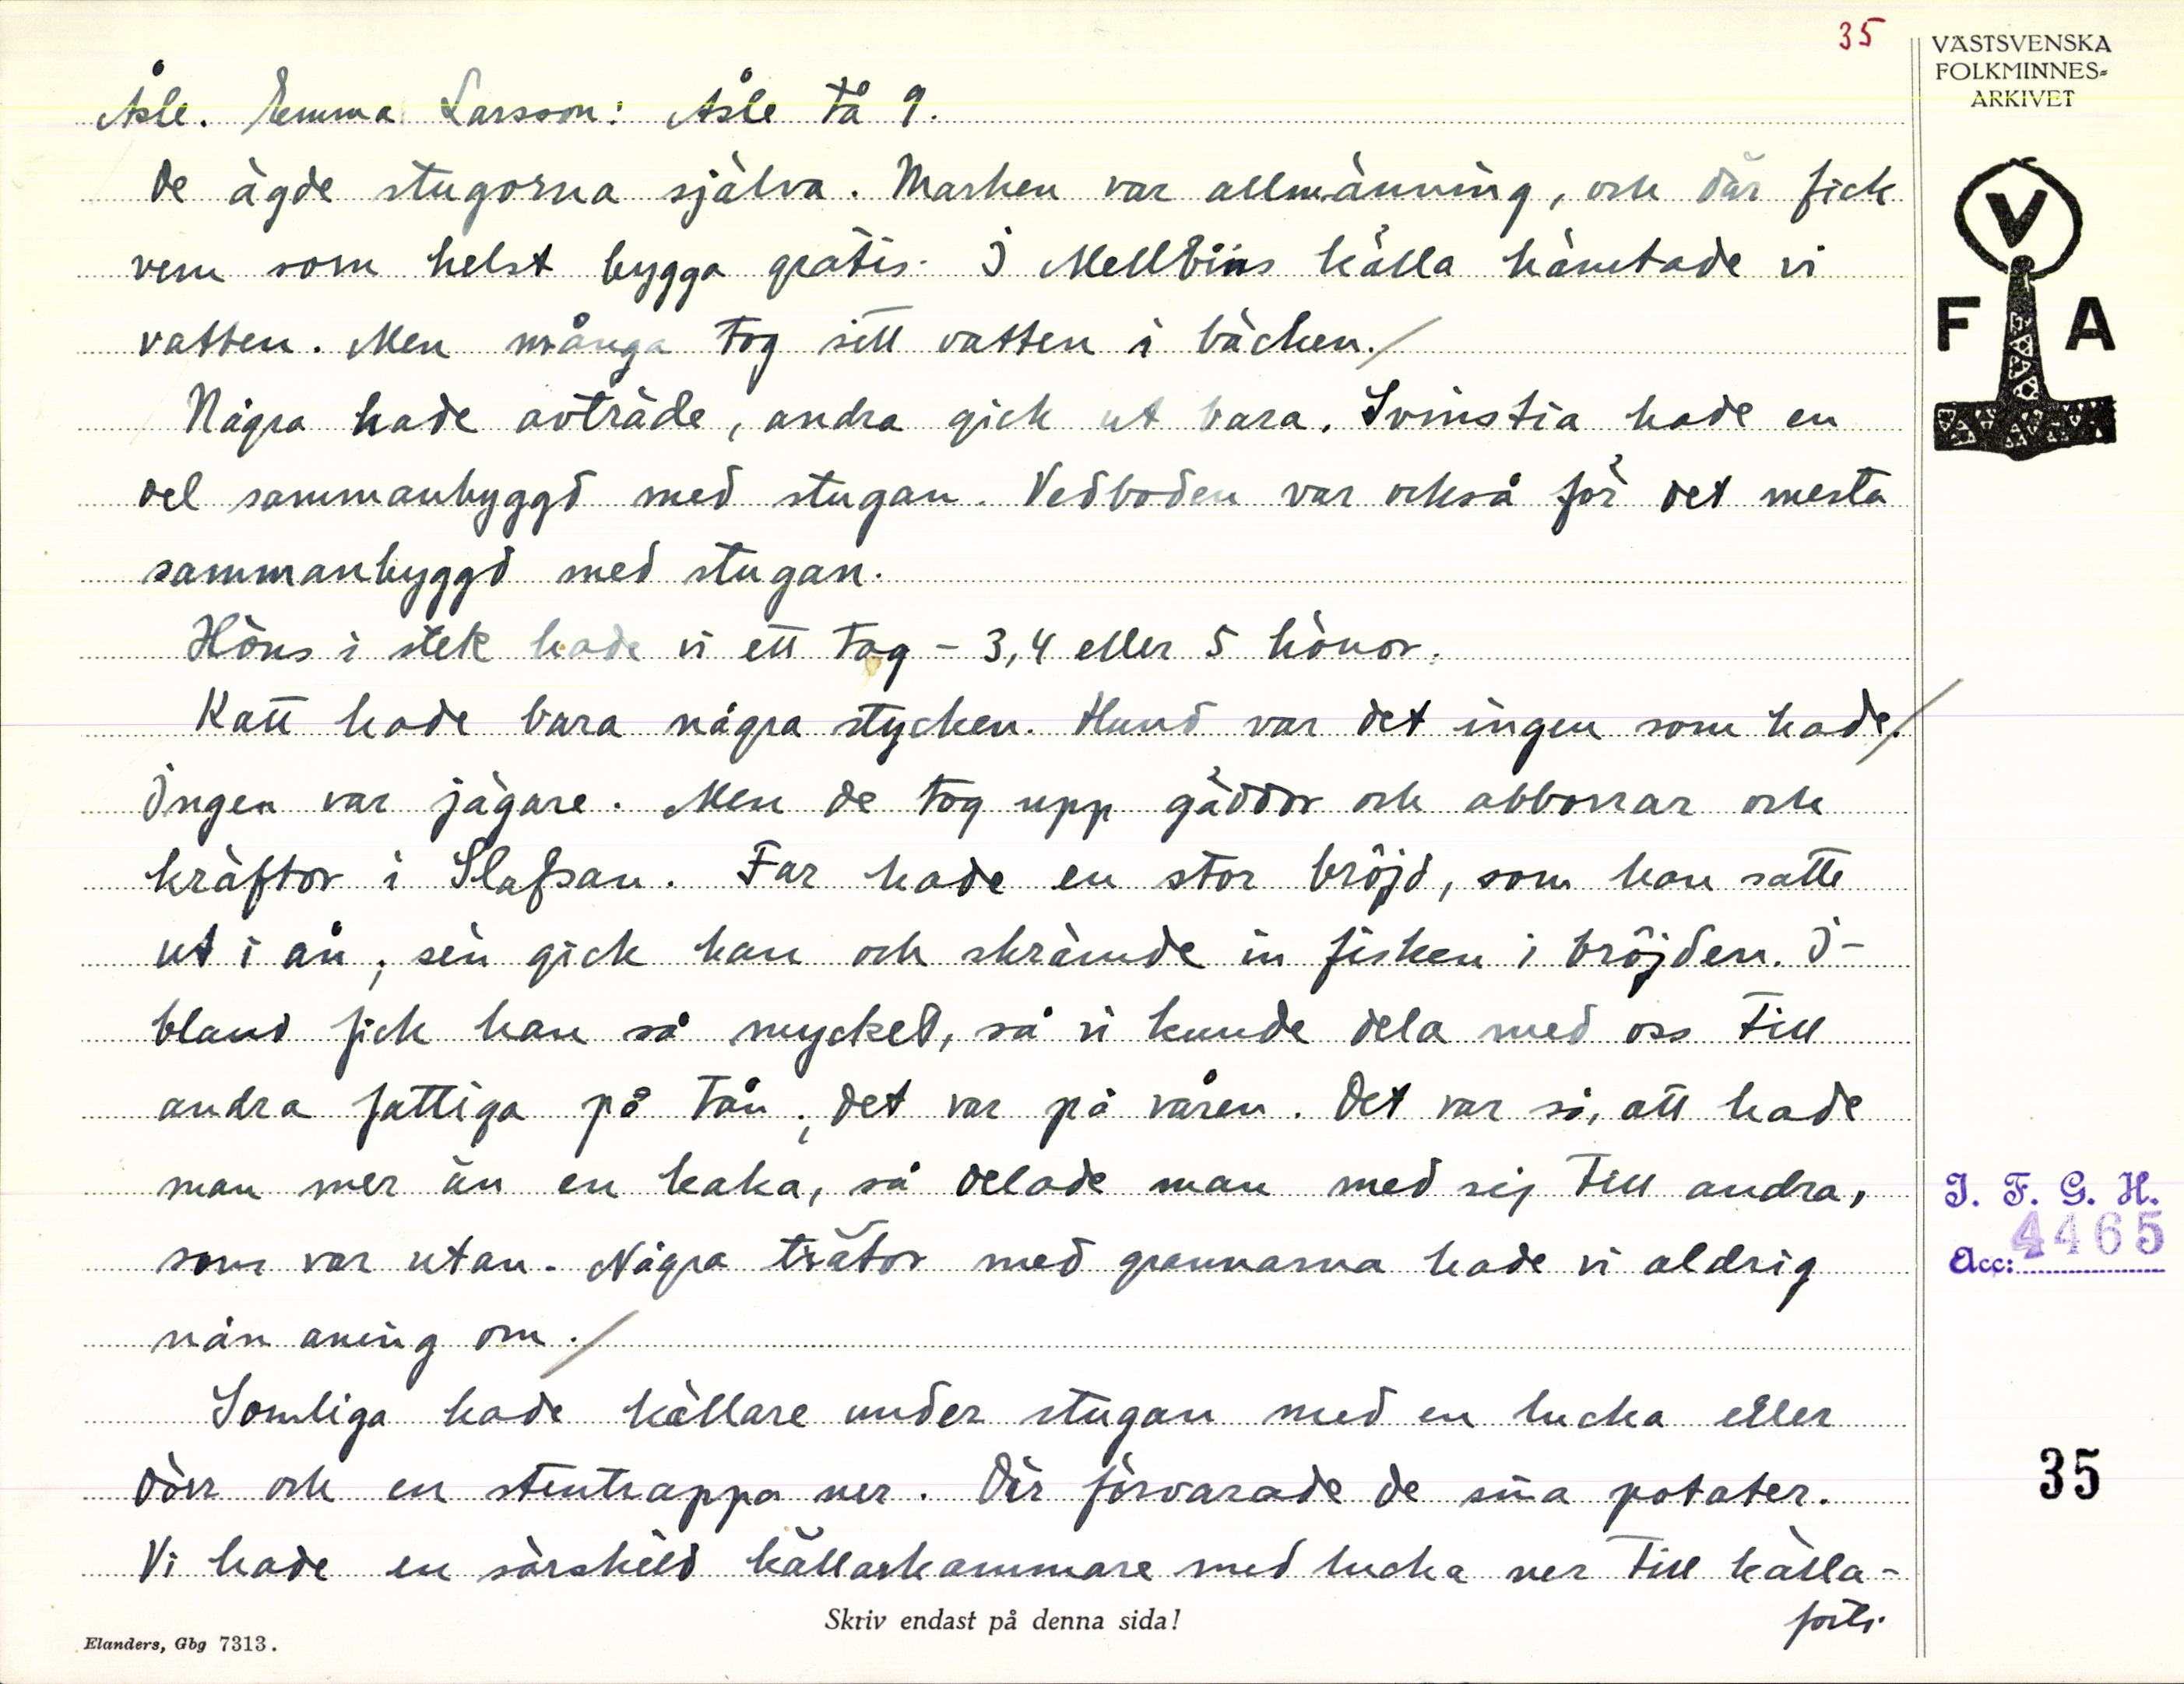 35
VÄSTSVENSKA
FOLKMINNES=
ARKIVET
V
F A
Åsle. Emma Larsson: Åsle Tå 9.
De ägde stugorna själva. Marken var allmänning, och där fick
vem som helst bygga gratis. I Mellbins källa hämtade vi
vatten. Men många tog sitt vatten i bäcken./
Några hade avträde, andra gick ut bara. Svinstia hade en
del sammanbyggd med stugan. Vedboden var också för det mesta
sammanbyggd med stugan.
Höns i stek hade vi ett tag - 3,4 eller 5 hönor.
Katt hade bara några stycken. Hund var det ingen som hade/.
Ingen var jägare. Men de tog upp gäddor och abborrar och
kräftor i Slafsan. Far hade en stor bröjd, som han satte
ut i ån, sen gick han och skrämde in fisken i bröjden. I-
bland fick han så mycket, så vi kunde dela med oss till
andra fattiga på Tån; det var på våren. Det var så, att hade
man mer än en kaka, så delade man med sej till andra,
som var utan. Några trätor med grannarna hade vi aldrig
nån aning om./
Somliga hade källare under stugan med en lucka eller
dörr och en stentrappa ner. Där förvarade de sina potater.
Vi hade en särskild källarkammare med lucka ner till källa-
forts.
I. F. G. H.
Acc: 4465
35
Skriv endast på denna sida!
Elanders, Gbg 7313.